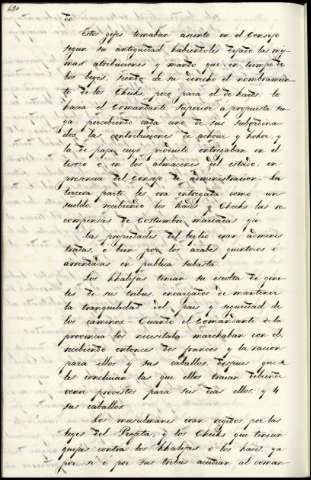 do
Estos gefes tomaban asiento en el Consejo
segun su antiguedad habiendoles dejado las mis
mas atribuciones y mando que en tiempo de
los beyes, siendo de su derecho el nombramien
to de los Cheiks, pero para el de kaids lo
hacia el Comandante Superior a propuesta su
ya percibiendo cada uno de sus subordina
dos, las contribuciones de achour y hokor, y
la de paja cuyo producto entregaban en el
tesoro o en los almacenes del estado, en
presencia del Consejo de administracion. La
tercera parte les era entregada como un
sueldo recibiendo los kaids y Cheiks las re
compensas de Costumbre marcadas ya
Las propiedades del beylic eran adminis
tradas, o bien por los arabes quinteros o
arrendadas en publica subasta.
Los khalifas tenian su escolta de gine
tes de sus tribus, encargados de mantener
la tranquilidad del pais y seguridad de
los caminos. Cuando el Comandante de la
provincia los necesitaba marchaban con él,
recibiendo entonces dos francos y la racion
para ellos y sus caballos, despues que se
les concluian las que ellos traian debiendo
venir provistos para dias ellos y 4
sus caballos
Los musulmanes eran regidos por las
leyes del Profeta, o los Cheiks que tengan
quejas contra los khalifas o los kaids, ya
por si o por sus tribus acudian al coman-